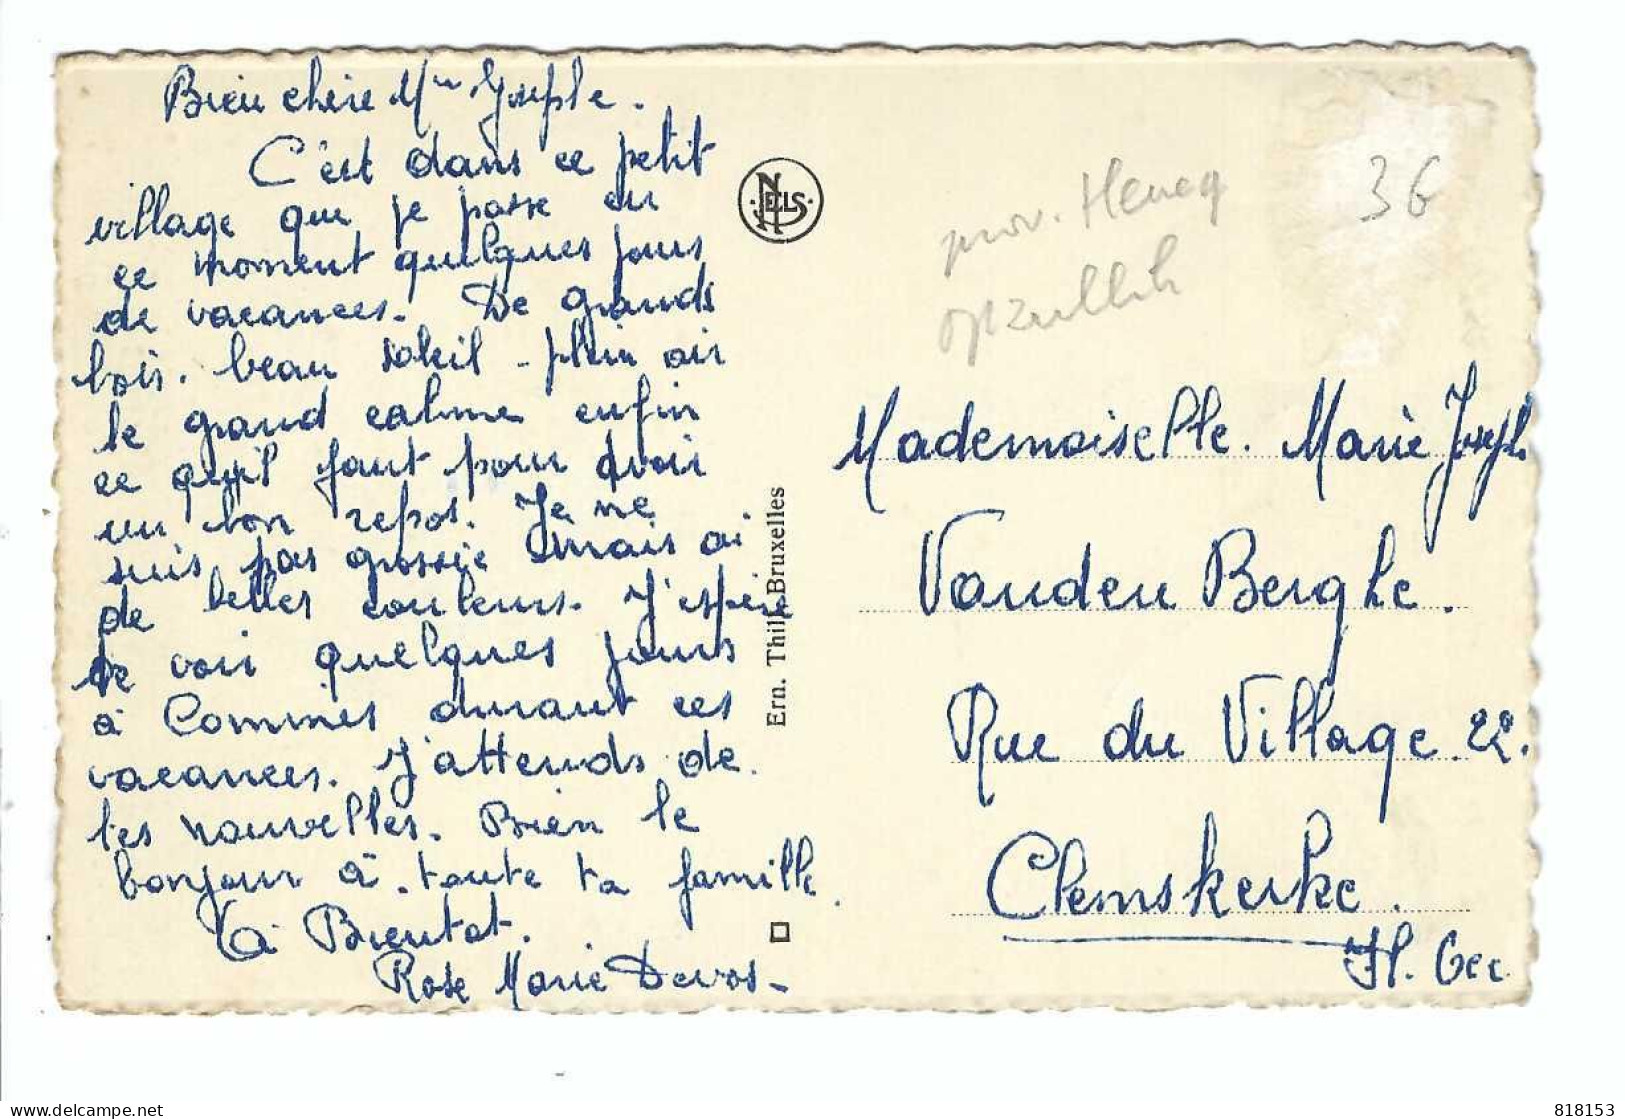 Bien chère Mie Josephe.
C'est dans ce petit
village que je passe en
ce moment quelques jours
de vacances. De grands
bois. beau soleil - plein air
le grand calme enfin
ce qu'il faut pour avoir
un bon repos. Je ne
suis pas grossie mais ai
de belles couleurs. J'espère
te voir quelques jours
à Commes durant ces
vacances. J'attends de
tes nouvelles. Bien le
bonjour à toute ta famille.
à Bientot.
Rose Marie Devos-
NELS
Ern. Thill, Bruxelles
prov. Heneg
opzullik
36
Mademoiselle. Marie Joseph
Vanden Berghe.
Rue du Village. 22.
Clemskerke.
Fl. Occ
818153